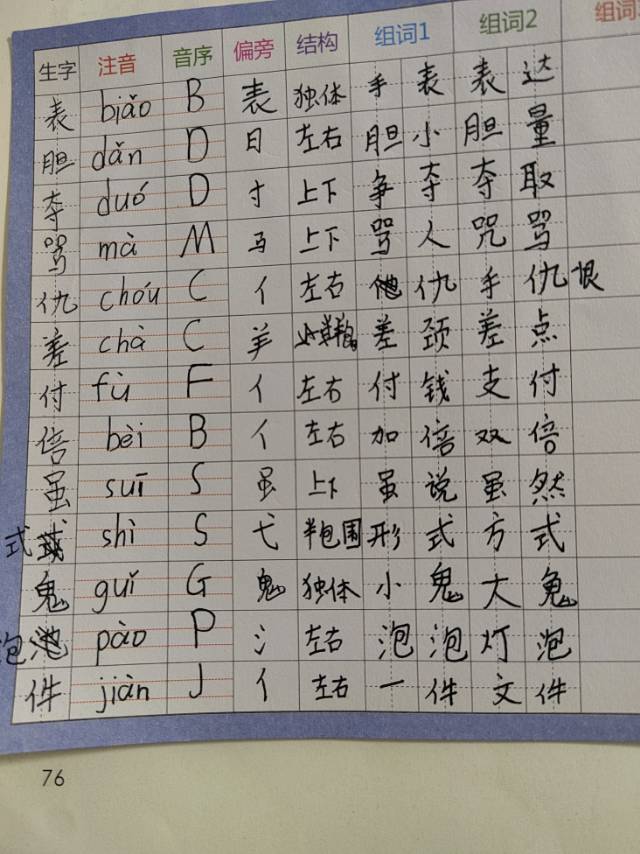 生字 注音 音序 偏旁 结构 组词1 组词2 组词
表 biǎo B 表 独体 手表 表达
胆 dǎn D 日 左右 胆小 胆量
夺 duó D 寸 上下 争夺 夺取
骂 mà M 马 上下 骂人 咒骂
仇 chóu C 亻 左右 仇 手 仇恨
差 chà C 羊 差颈 差点
付 fù F 亻 左右 付钱 支付
倍 bèi B 亻 左右 加倍 双倍
虽 suī S 虽 上下 虽说 虽然
式 shì S 弋 半包围 形式 方式
鬼 guǐ G 鬼 独体 小鬼 大鬼
泡 pào P 氵 左右 泡泡 灯泡
件 jiàn J 亻 左右 一件 文件
76